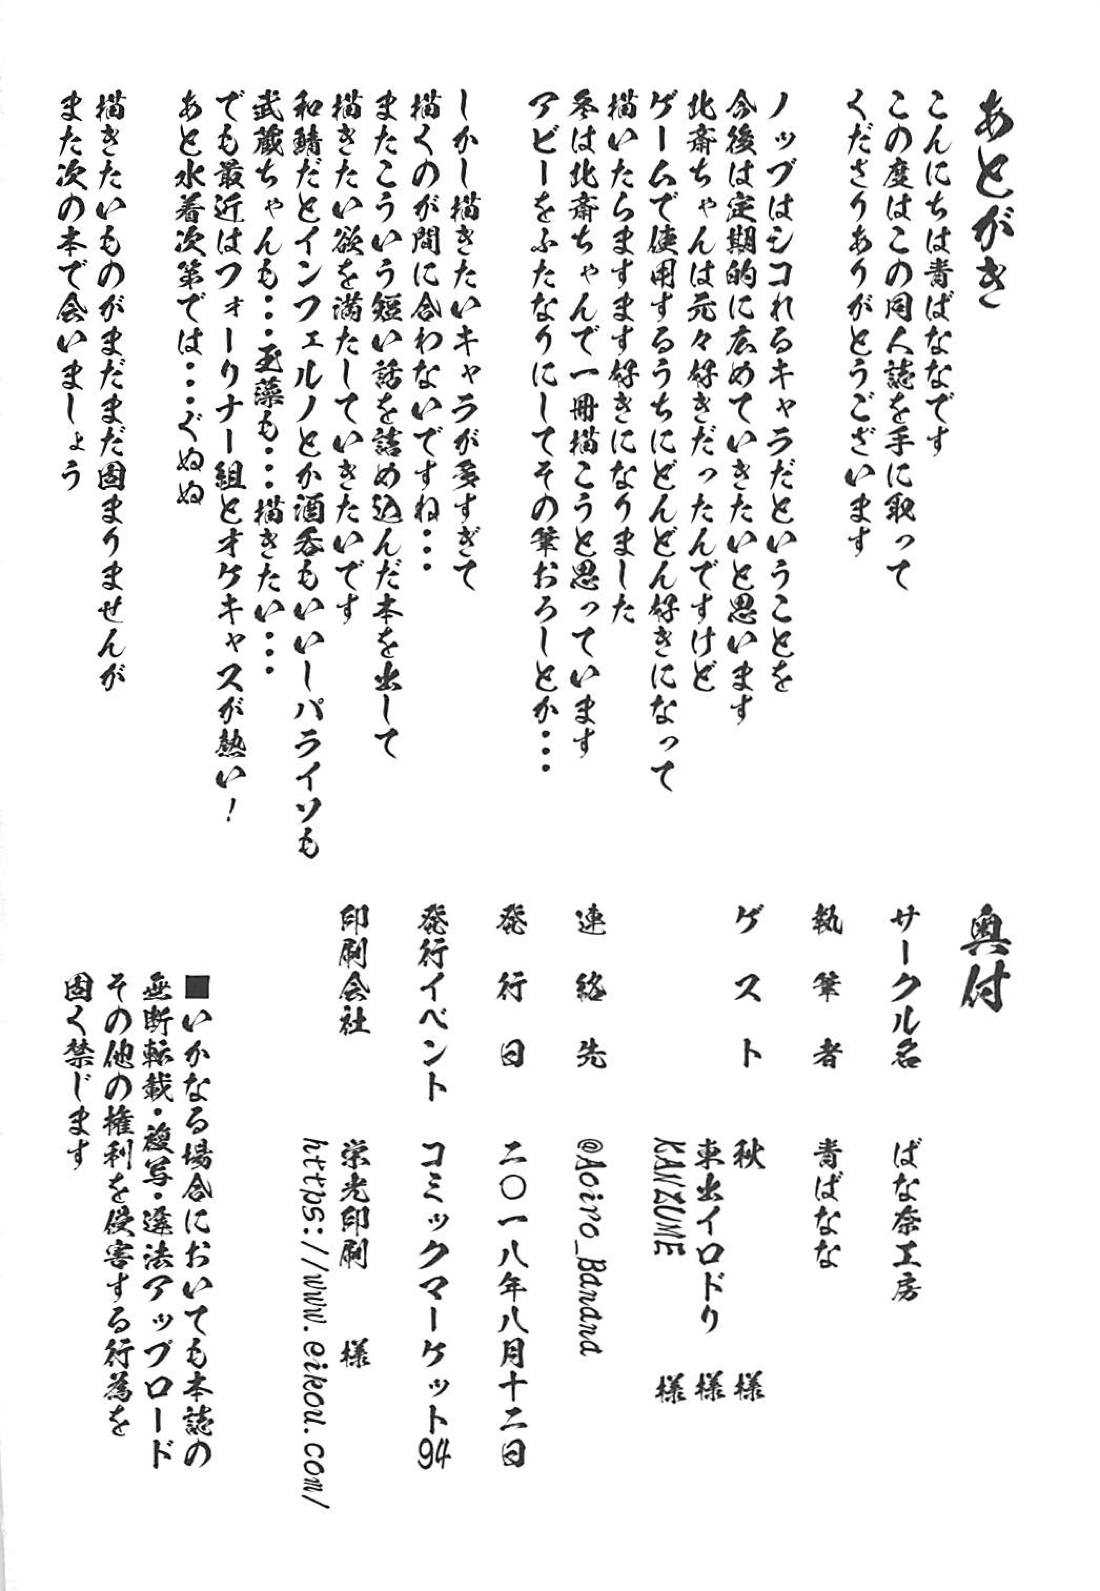 あとがき
こんにちは青ばななです
この度はこの同人誌を手に取って
くださりありがとうございます
ノッブはシコれるキャラだということを
今後は定期的に広めていきたいと思います
北斎ちゃんは元々好きだったんですけど
ゲームで使用するうちにどんどん好きになって
描いたらますます好きになりました
冬は北斎ちゃんで一冊描こうと思っています
アビーをふたなりにしてその筆おろしとか・・・
しかし描きたいキャラが多すぎて
描くのが間に合わないですね・・・
またこういう短い話を詰め込んだ本を出して
描きたい欲を満たしていきたいです
和鯖だとインフェルノとか酒呑もいいしパライソも
武蔵ちゃんも・・・玉藻も・・・描きたい・・・
でも最近はフォーリナー組とオケキャスが熱い！
あと水着次第では・・・ぐぬぬ
描きたいものがまだまだ固まりませんが
また次の本で会いましょう
奥付
サークル名 ばな奈工房
執筆者 青ばなな
ゲスト 秋 様
東出イロドリ 様
KANZUME 様
連絡先 @Aoiro_Banana
発行日 二〇一八年八月十二日
発行イベント コミックマーケット94
印刷会社 栄光印刷 様
https://www.eikou.com/
■いかなる場合においても本誌の
無断転載・複写・違法アップロード
その他の権利を侵害する行為を
固く禁じます